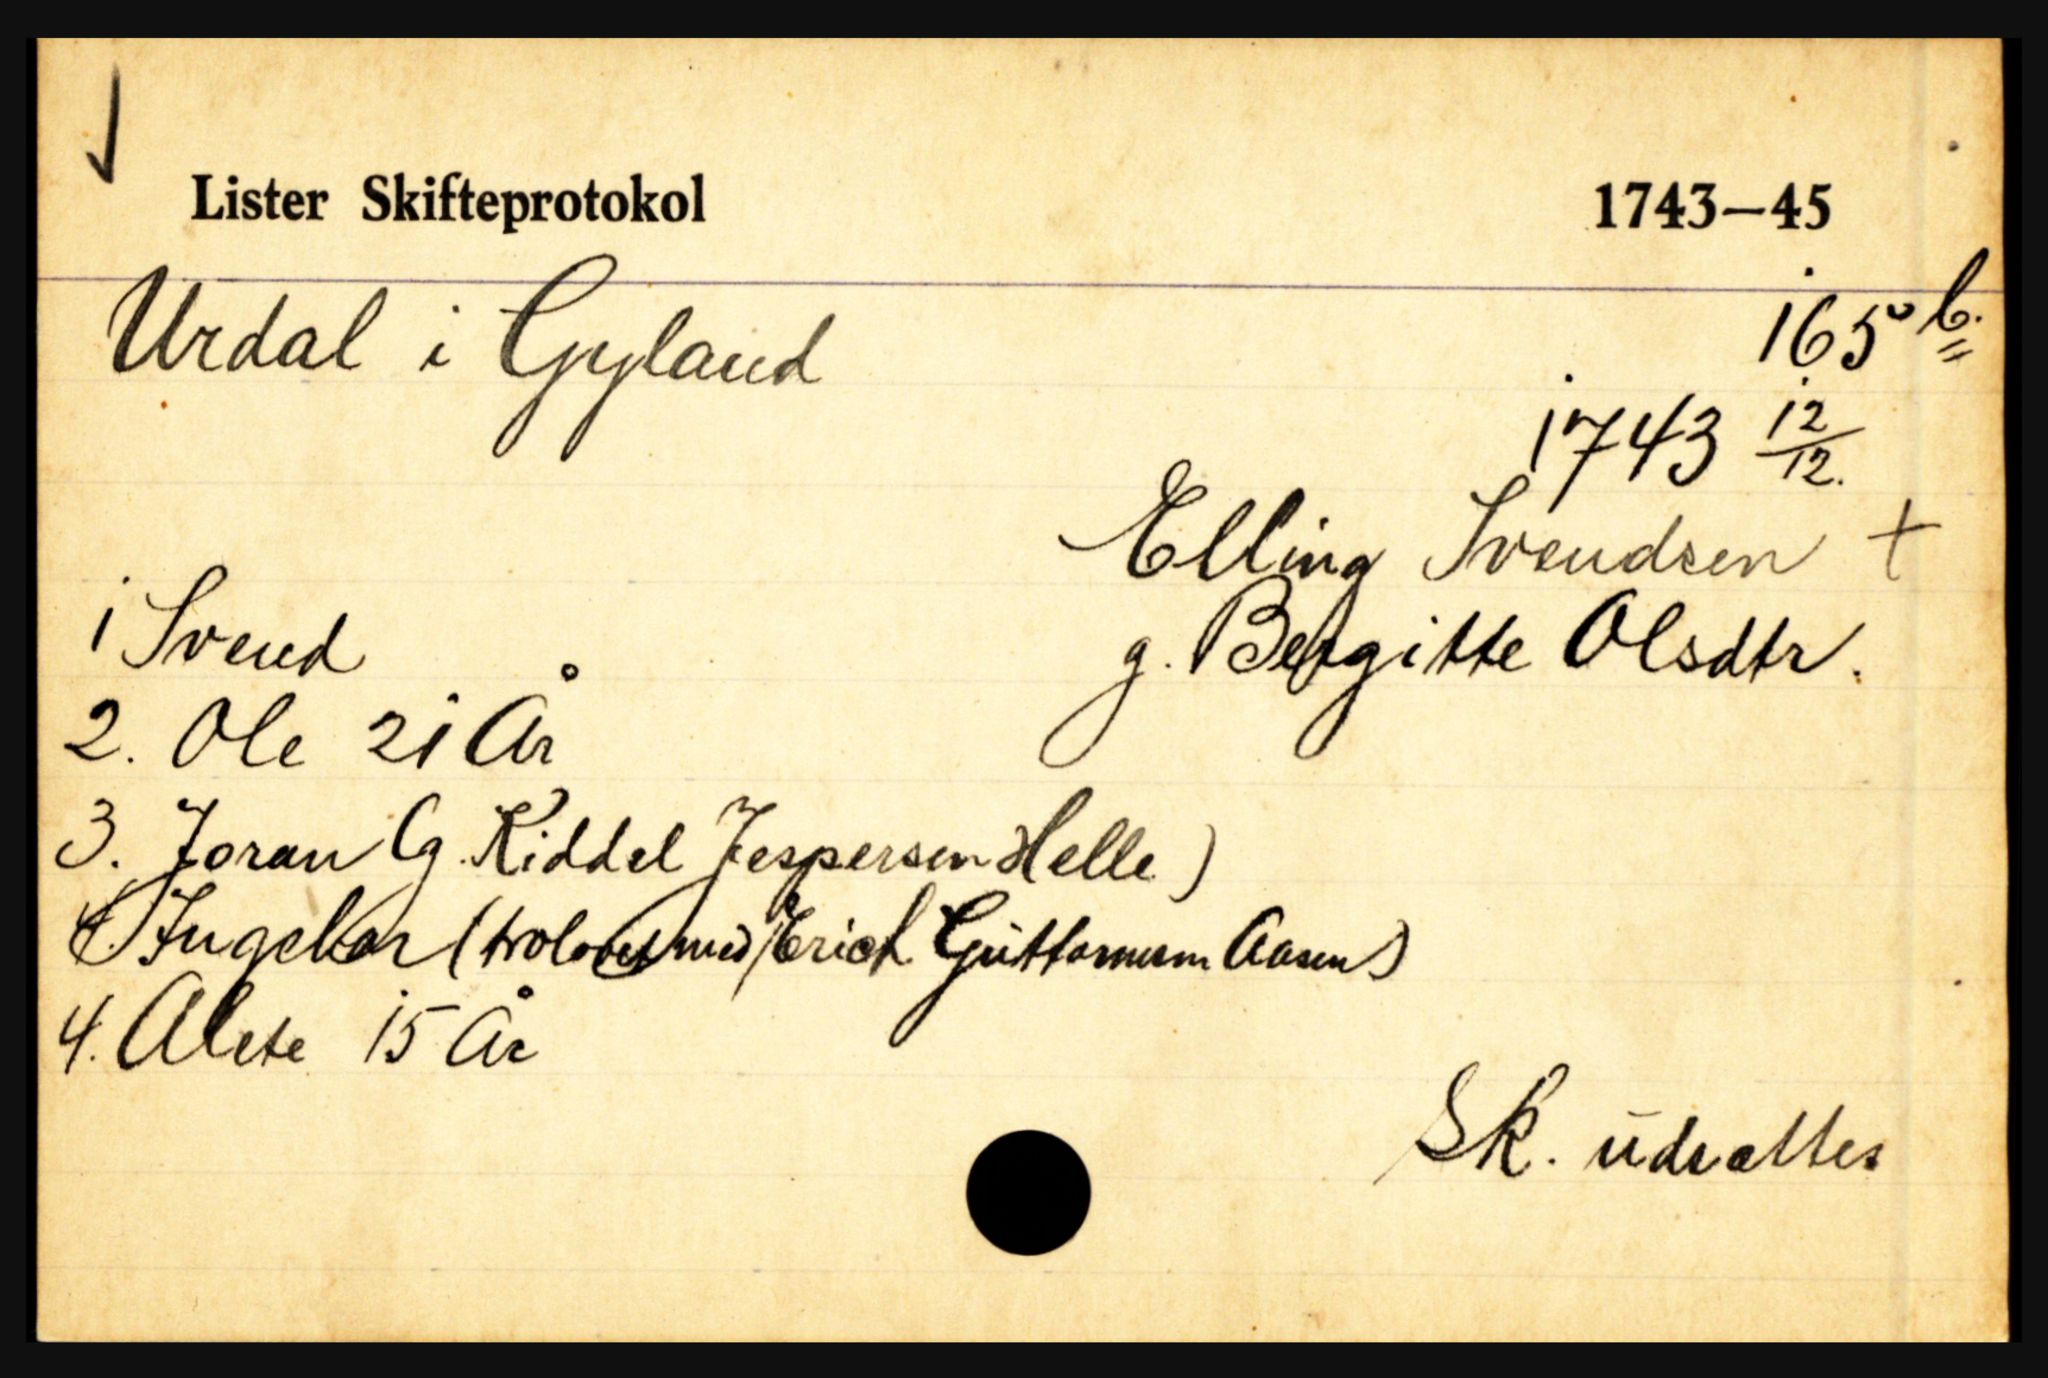 Lister Skifteprotokol 1743—45
Urdal i Gyland 165 b.
1743 12/12.
Elling Svendsen +
g. Bergitte Olsdtr.
1 Svend
2. Ole 21 År
3. Joran (g. Kiddel Jespersen Helle)
4. Ingebor (trolovet med Erich Guttormsen Aasen)
4. Alete 15 År
Sk. udsættes